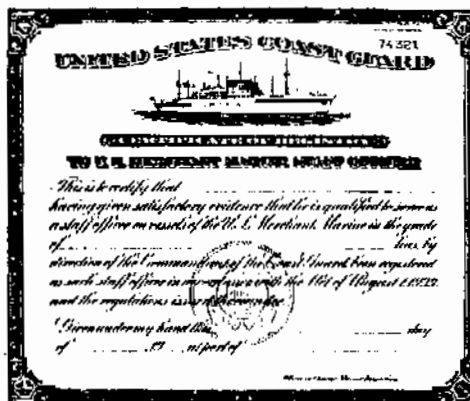 74321
UNITED STATES COAST GUARD
CERTIFICATE OF REGISTRY
TO U. S. MERCHANT MARINE STAFF OFFICER
This is to certify that
having given satisfactory evidence that he is qualified to serve as
a staff officer on vessels of the U. S. Merchant Marine in the grade
of has, by
direction of the Commandant of the Coast Guard, been registered
as such staff officer in accordance with the Act of August 1, 1939
and the regulations issued thereunder
Given under my hand this day
of 19 at port of